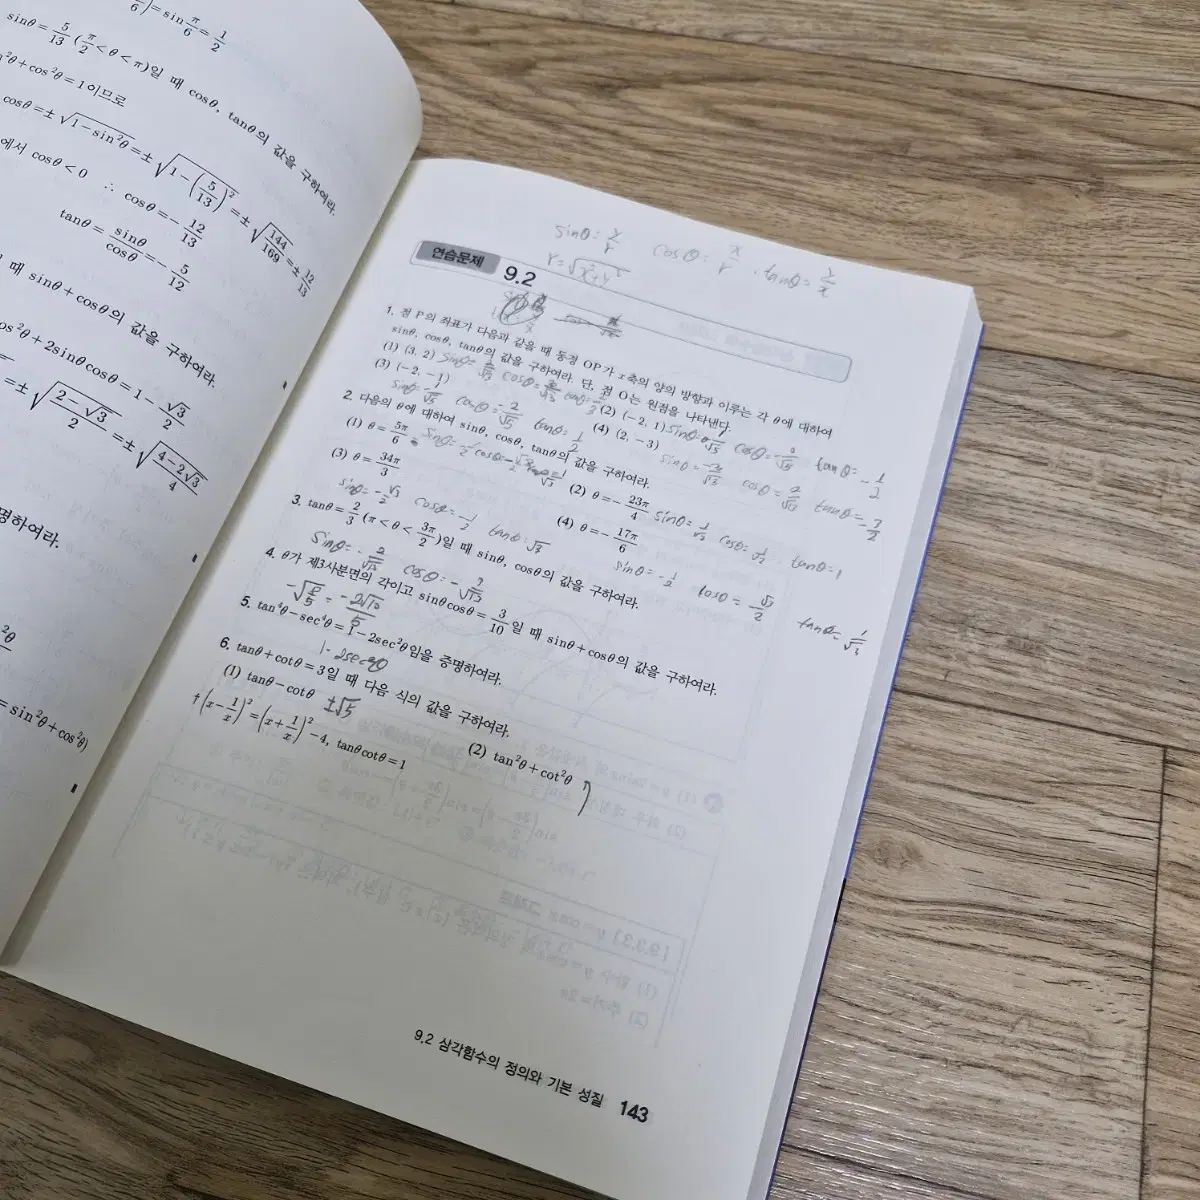 6)=sin π/6 = 1/2
sinθ = 5/13 (π/2 < θ < π)일 때 cosθ, tanθ의 값을 구하여라.
²θ+cos²θ=1이므로
cosθ=±√(1−sin²θ)=±√(1−(5/13)²)=±√(144/169)=±12/13
에서 cosθ<0 ∴ cosθ=−12/13
tanθ=sinθ/cosθ=−5/12
때 sinθ+cosθ의 값을 구하여라.
os²θ+2sinθcosθ=1−√3/2
=±√((2−√3)/2)=±√((4−2√3)/4)
명하여라.
²θ
=sin²θ+cos²θ)
sinθ= y/r cosθ= x/r tanθ= y/x
r=√(x²+y²)
연습문제 9.2
1. 점 P의 좌표가 다음과 같을 때 동경 OP가 x축의 양의 방향과 이루는 각 θ에 대하여
sinθ, cosθ, tanθ의 값을 구하여라. 단, 점 O는 원점을 나타낸다.
(1) (3, 2) sinθ= 2/√13 cosθ= 3/√13 tanθ= 2/3 (2) (−2, 1) sinθ= 1/√5 cosθ=−2/√5 tanθ=−1/2
(3) (−2, −1) (4) (2, −3)
sinθ=−1/√5 cosθ=−2/√5 tanθ=1/2 sinθ=−3/√13 cosθ=2/√13 tanθ=−3/2
2. 다음의 θ에 대하여 sinθ, cosθ, tanθ의 값을 구하여라.
(1) θ=5π/6 sinθ=1/2 cosθ=−√3/2 (2) θ=−23π/4 sinθ=1/√2 cosθ=1/√2 tanθ=1
(3) θ=34π/3 (4) θ=−17π/6
sinθ=−√3/2 cosθ=−1/2 tanθ=√3 sinθ=−1/2 cosθ=−√3/2 tanθ=1/√3
3. tanθ=2/3 (π<θ<3π/2)일 때 sinθ, cosθ의 값을 구하여라.
sinθ=−2/√13 cosθ=−3/√13
4. θ가 제3사분면의 각이고 sinθcosθ=3/10 일 때 sinθ+cosθ의 값을 구하여라.
−√(8/5) = −2√10/5
5. tan⁴θ−sec⁴θ=1−2sec²θ임을 증명하여라.
1−2sec²θ
6. tanθ+cotθ=3일 때 다음 식의 값을 구하여라.
(1) tanθ−cotθ ±√5 (2) tan²θ+cot²θ 7
† (x−1/x)²=(x+1/x)²−4, tanθcotθ=1
9.2 삼각함수의 정의와 기본 성질 143